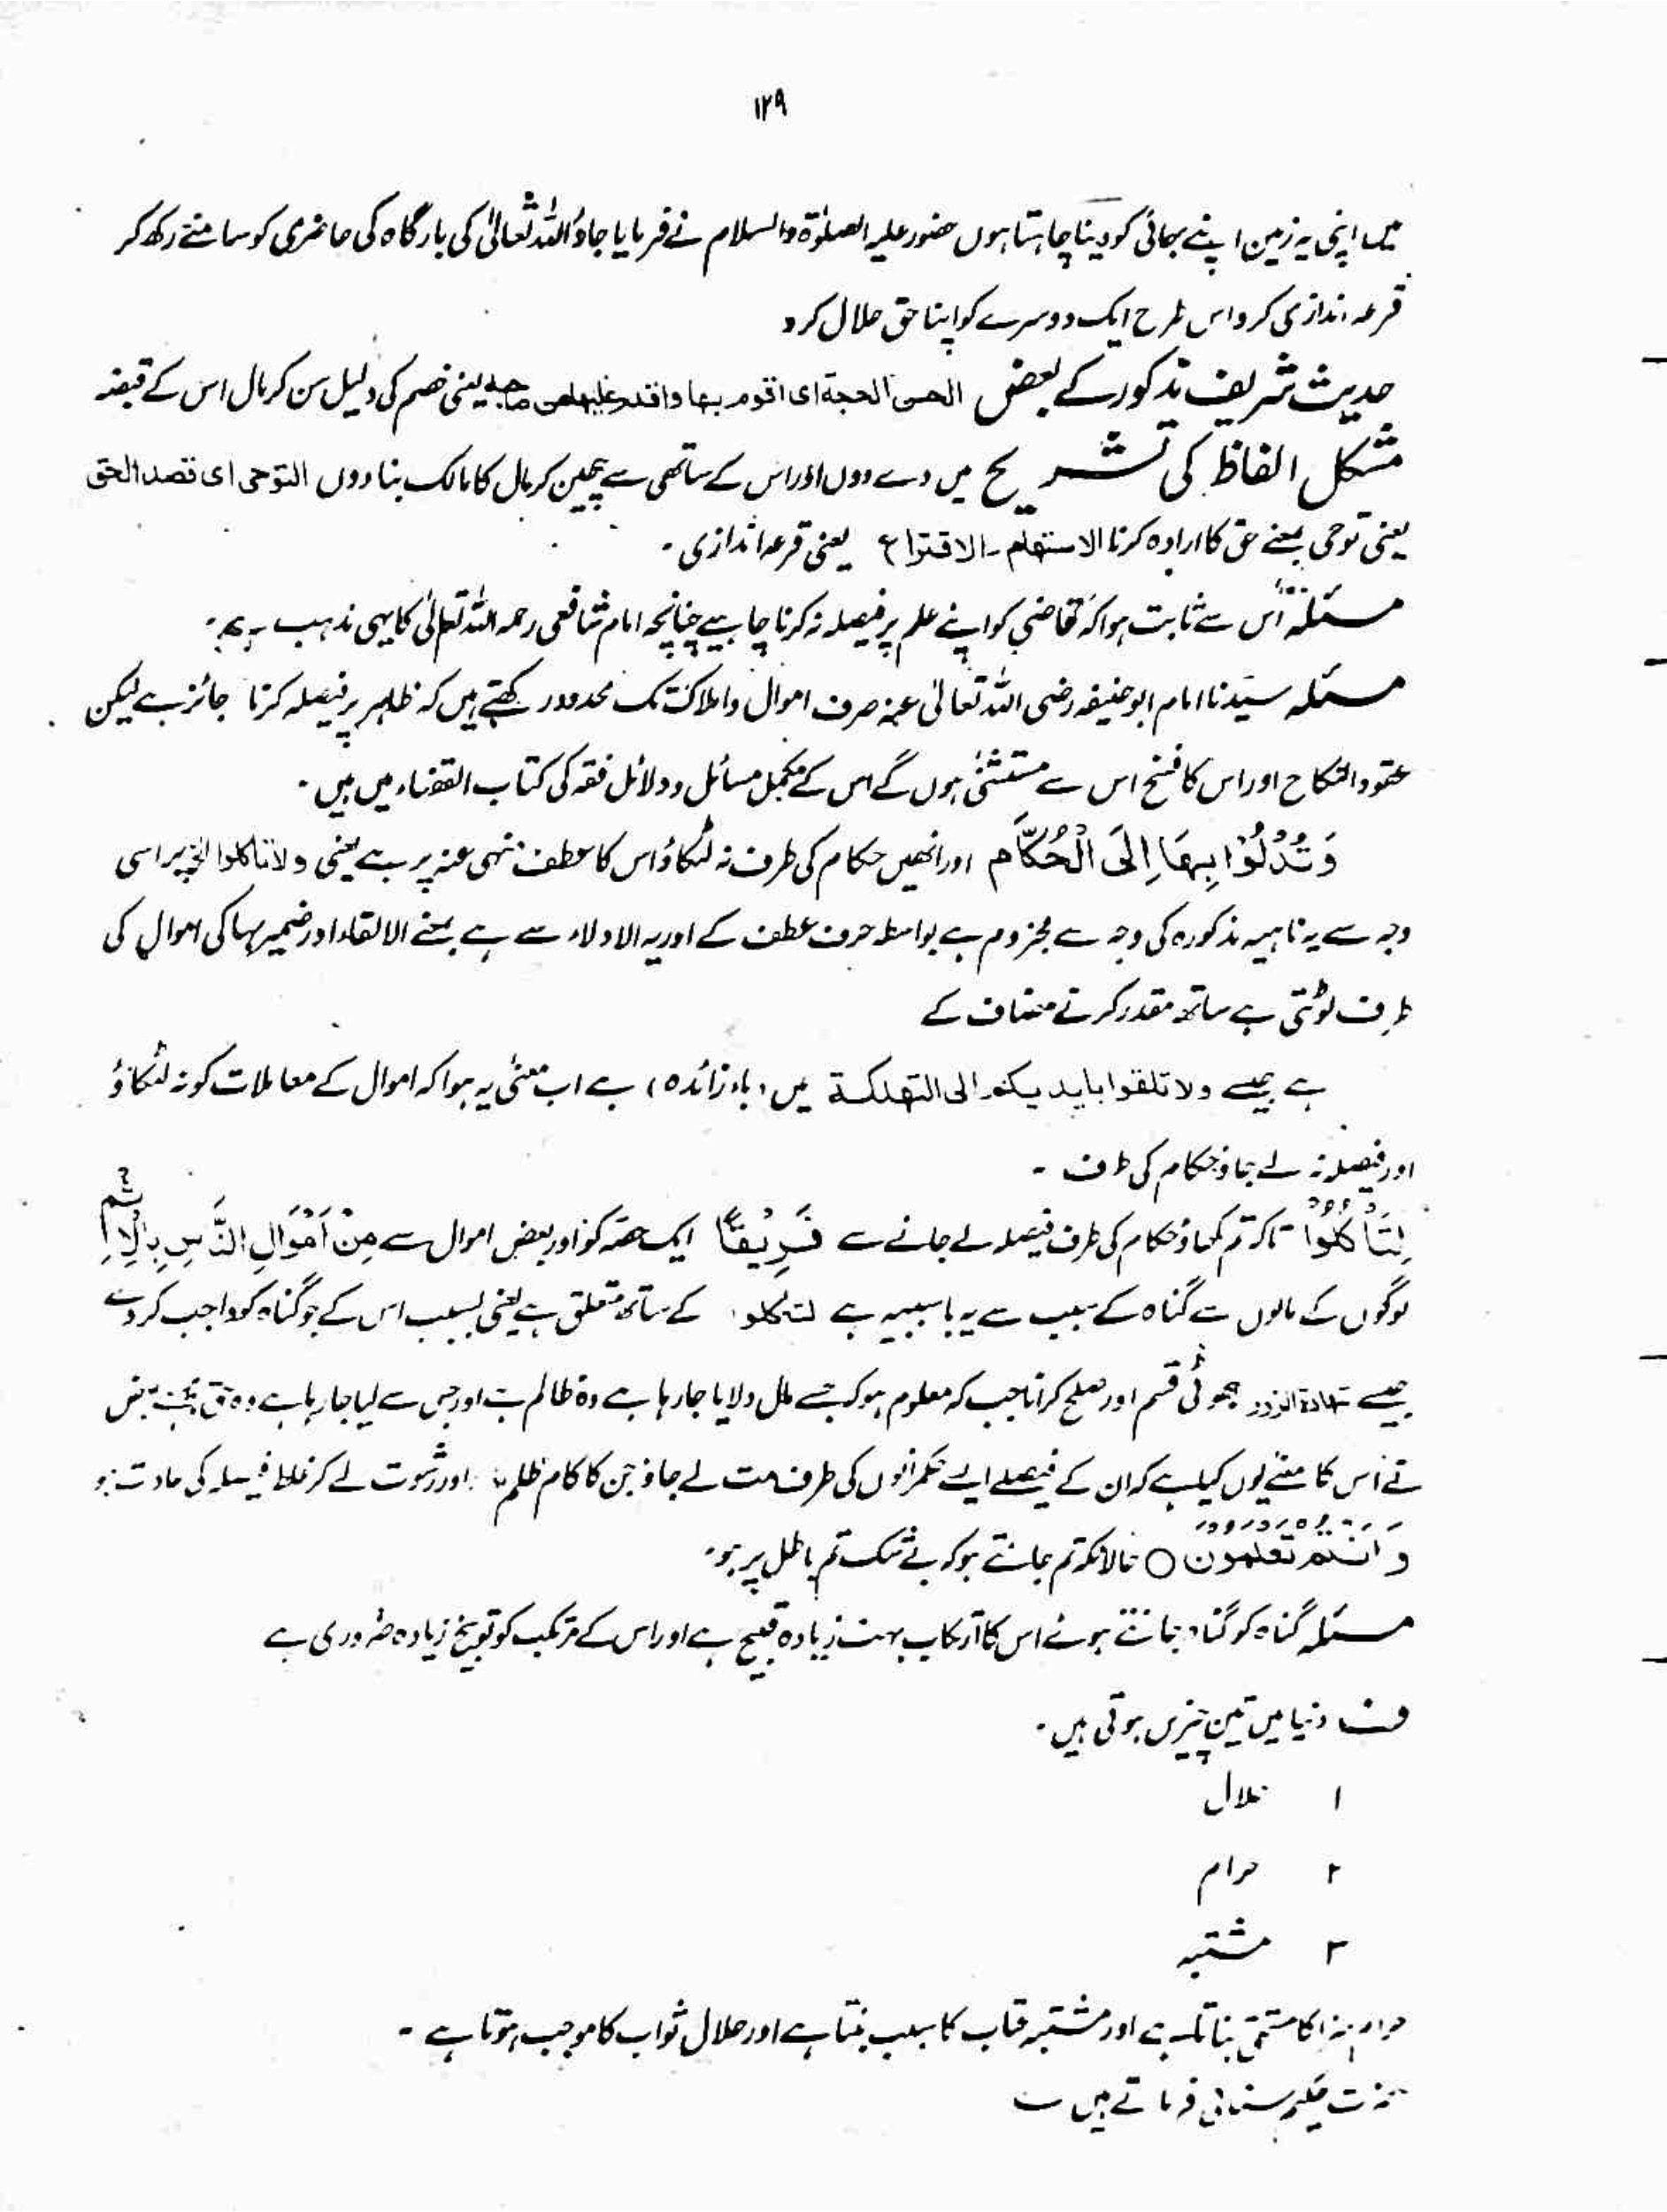 ۱۲۹
میں اپنی یہ زمین اپنے بھائی کو دینا چاہتا ہوں حضور علیہ الصلوٰۃ والسلام نے فرمایا جاؤ اللہ تعالیٰ کی بارگاہ کی حاضری کو سامنے رکھ کر
قرعہ اندازی کرو اس طرح ایک دوسرے کو اپنا حق حلال کرو
حدیث شریف مذکور کے بعض الحن الحجة ای اقوم بها واقدر علیها من صاحبه یعنی خصم کی دلیل سن کر مال اس کے قبضہ
مشکل الفاظ کی تشریح میں دے دوں اور اس کے ساتھی سے چھین کر مال کا مالک بنا دوں التوحی ای قصد الحق
یعنی توحی بمعنے حق کا ارادہ کرنا الاستهام۔الاقتراع یعنی قرعہ اندازی۔
مسئلہ اس سے ثابت ہوا کہ قاضی کو اپنے علم پر فیصلہ نہ کرنا چاہیے چنانچہ امام شافعی رحمہ اللہ تعالیٰ کا یہی مذہب ہے۔
مسئلہ سیدنا امام ابوحنیفہ رضی اللہ تعالیٰ عنہ صرف اموال و املاک تک محدود رکھتے ہیں کہ ظاہر پر فیصلہ کرنا جائز ہے لیکن
عقود النکاح اور اس کا فسخ اس سے مستثنیٰ ہوں گے اس کے مکمل مسائل و دلائل فقہ کی کتاب القضاء میں ہیں۔
وَتُدْلُوْا بِهَا اِلَى الْحُكَّامِ اور انھیں حکام کی طرف نہ لٹکاؤ اس کا عطف نہی عنہ پر ہے یعنی ولا تاکلوا الخ پر اسی
وجہ سے یہ ناہیہ مذکورہ کی وجہ سے مجزوم ہے بواسطہ حرف عطف کے اور یہ الادلاء سے ہے بمعنے الالقاء اور ضمیر بہا کی اموال کی
طرف لوٹتی ہے ساتھ مقدر کرنے مضاف کے
ہے جیسے ولا تلقوا بایدیکم الی التهلکة میں (باء زائدہ) ہے اب معنیٰ یہ ہوا کہ اموال کے معاملات کو نہ لٹکاؤ
اور فیصلہ نہ لے جاؤ حکام کی طرف ۔
لِتَاْكُلُوْا تاکہ تم کھاؤ حکام کی طرف فیصلہ لے جانے سے فَرِيْقًا ایک حصہ کو اور بعض اموال سے مِنْ اَمْوَالِ النَّاسِ بِالْاِثْمِ
لوگوں کے مالوں سے گناہ کے سبب سے یہ با سببیہ ہے لتاکلوا کے ساتھ متعلق ہے یعنی بسبب اس کے جو گناہ کو واجب کر دے
جیسے شهادة الزور جھوٹی قسم اور صلح کرانا جب کہ معلوم ہو کہ جسے مال دلایا جا رہا ہے وہ ظالم ہے اور جس سے لیا جا رہا ہے وہ حق بعض
نے اس کا معنےٰ یوں کیا ہے کہ ان کے فیصلے ایسے حکمرانوں کی طرف مت لے جاؤ جن کا کام ظلم اور رشوت لے کر غلط فیصلہ کی عادت ہو
وَاَنْتُمْ تَعْلَمُوْنَ ○ حالانکہ تم جانتے ہو کہ بے شک تم باطل پر ہو۔
مسئلہ گناہ کو گناہ جانتے ہوئے اس کا ارتکاب بہت زیادہ قبیح ہے اور اس کے مرتکب کو توبیخ زیادہ ضروری ہے
ف دنیا میں تین چیزیں ہوتی ہیں۔
۱ حلال
۲ حرام
۳ مشتبہ
حرام سزا کا مستحق بناتا ہے اور مشتبہ عتاب کا سبب بنتا ہے اور حلال ثواب کا موجب ہوتا ہے ۔
حضرت حکیم سنائی فرماتے ہیں